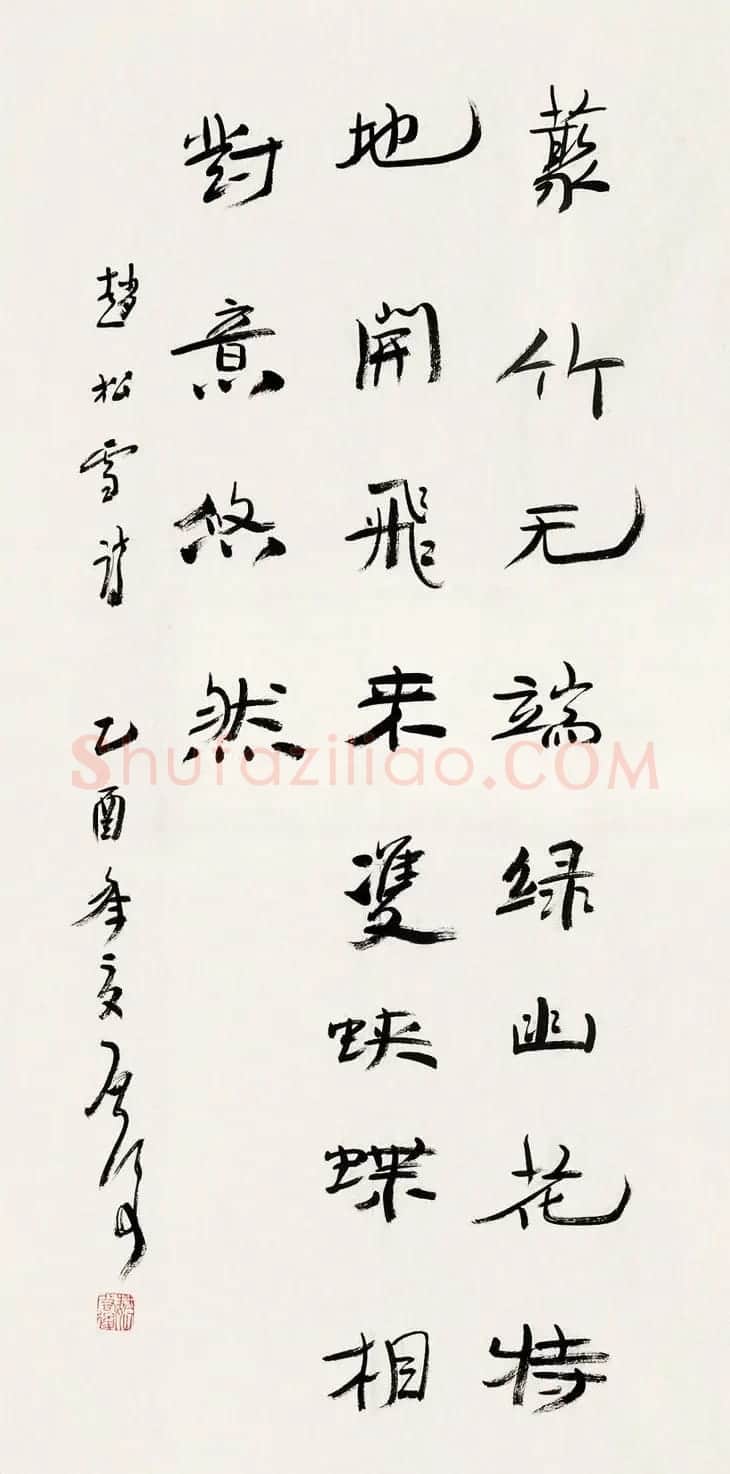 藂竹无端绿幽花特
地開飛来雙蛺蝶相
對意悠然
趙松雪詩 乙酉年夏
Shufaziliao.COM